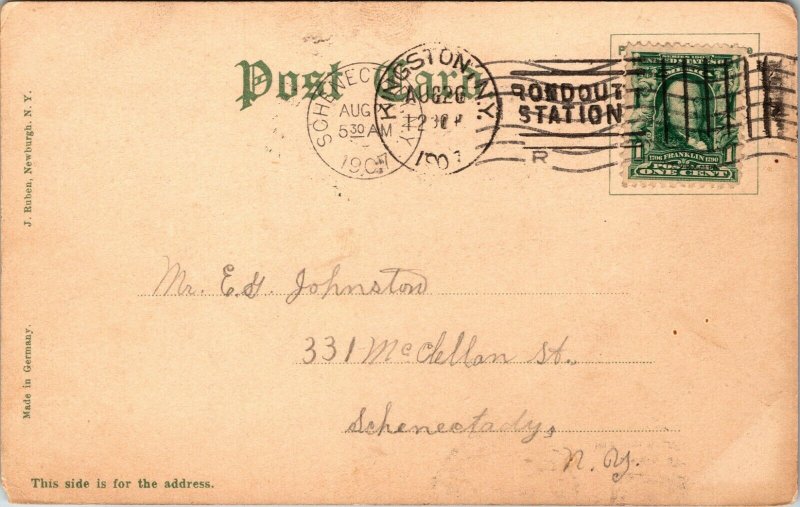 Post Card
SCHENECTADY
AUG
5 30 AM
1907
KINGSTON, N.Y.
AUG 26
12
1907
RONDOUT
STATION
R
1706 FRANKLIN 1790
POSTAGE
1 ONE CENT 1
J. Ruben, Newburgh, N. Y.
Made in Germany.
Mr. E.G. Johnston
331 McClellan St.
Schenectady,
N. Y.
This side is for the address.